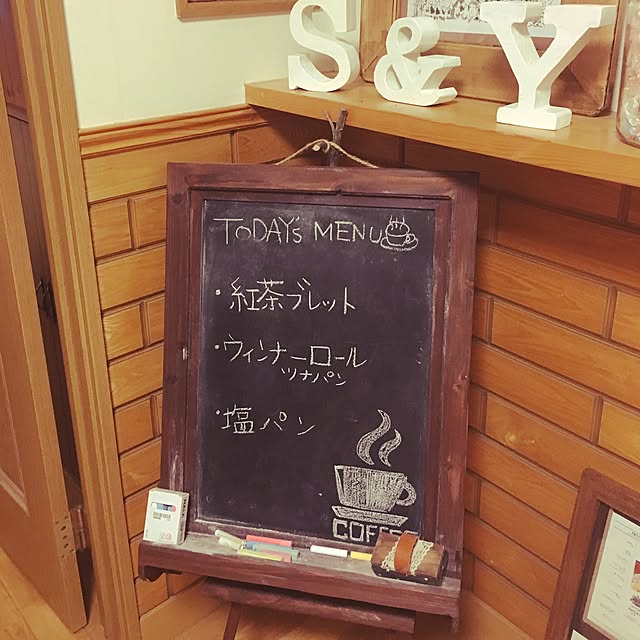 S&Y
TODAY's MENU
・紅茶ブレット
・ウィンナーロール
ツナパン
・塩パン